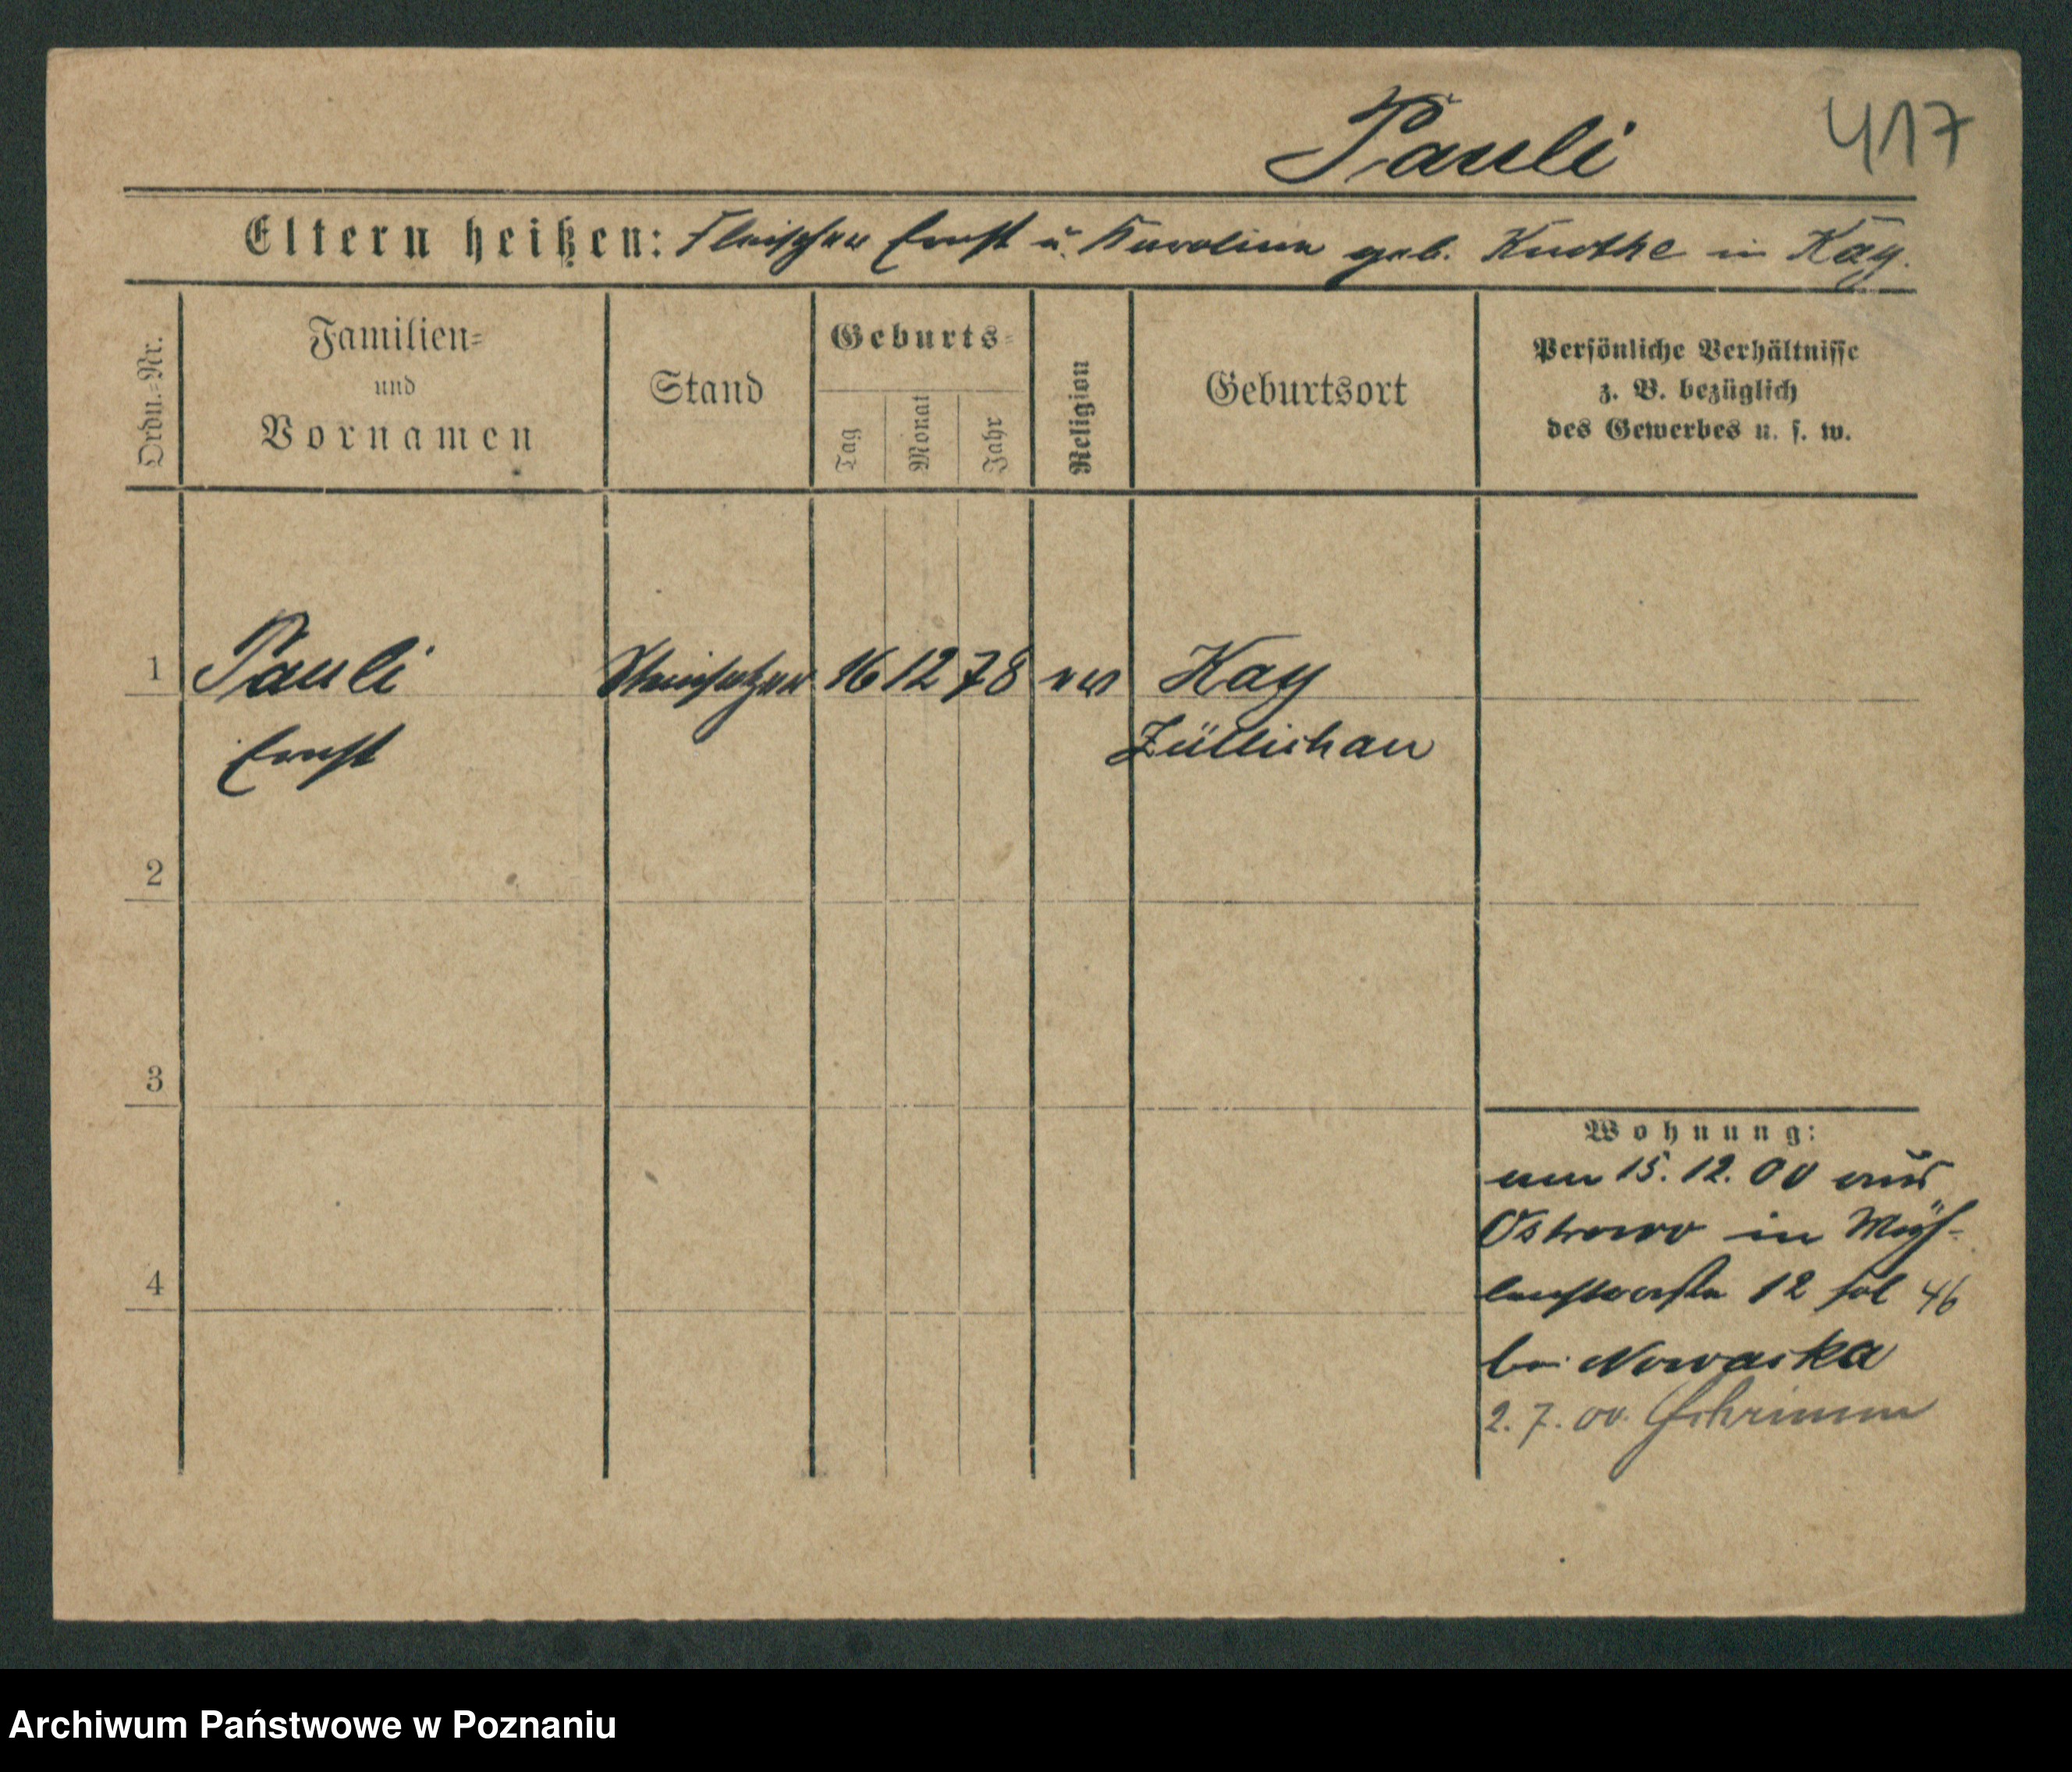 Pauli
417
Eltern heißen: Fleischer Ernst u. Karoline geb. Knothe in Kay.
Ordn.-Nr.
Familien-
und
Vornamen
Stand
Geburts-
Tag
Monat
Jahr
Religion
Geburtsort
Persönliche Verhältnisse
z. B. bezüglich
des Gewerbes u. s. w.
1 Pauli Steinsetzer 16 12 78 ev Kay
Ernst Züllichau
2
3
4
Wohnung:
am 15. 12. 00 aus
Ostrowo in
12 fol 46
bei Nowacka
2. 7. 00. Schrimm
Archiwum Państwowe w Poznaniu